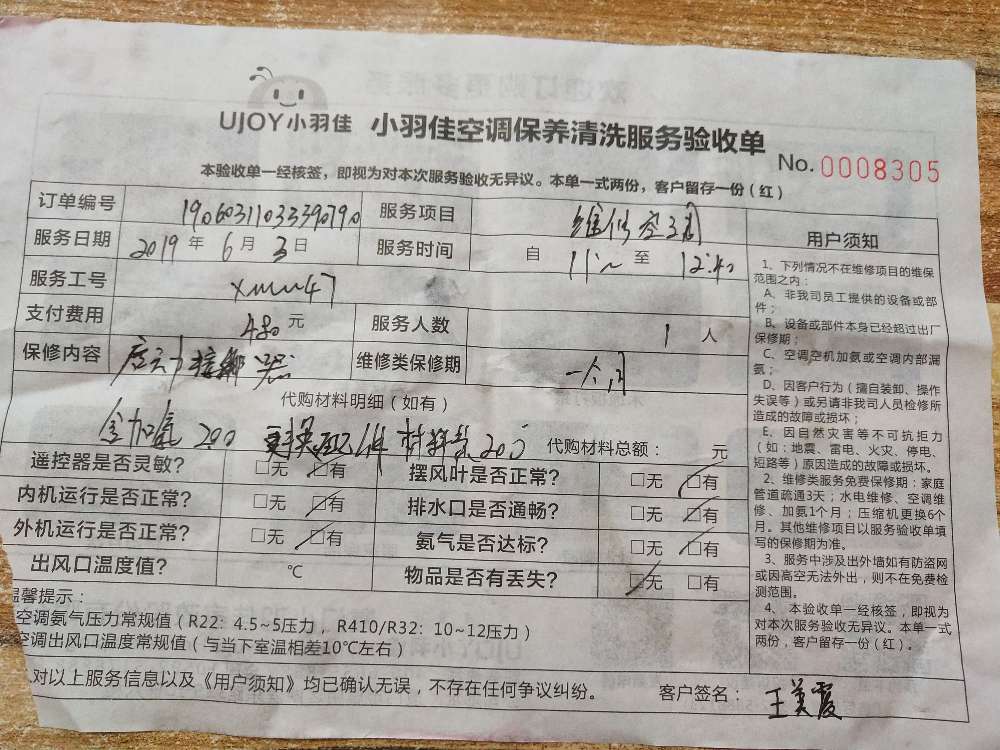 UJOY小羽佳 小羽佳空调保养清洗服务验收单
No. 0008305
本验收单一经核签，即视为对本次服务验收无异议。本单一式两份，客户留存一份（红）
订单编号 19060311033390790 服务项目 维修空调
服务日期 2019 年 6 月 3 日 服务时间 自 11:~ 至 12:40
服务工号 xmm47
支付费用 480 元 服务人数 1 人
保修内容 接触器 维修类保修期 一个月
代购材料明细（如有）
加氨 200 更换配件材料费200 代购材料总额： 元
遥控器是否灵敏? □无 □有 摆风叶是否正常? □无 □有
内机运行是否正常? □无 □有 排水口是否通畅? □无 □有
外机运行是否正常? □无 □有 氨气是否达标? □无 □有
出风口温度值? ℃ 物品是否有丢失? □无 □有
温馨提示：
空调氨气压力常规值（R22: 4.5~5压力，R410/R32: 10~12压力）
空调出风口温度常规值（与当下室温相差10℃左右）
对以上服务信息以及《用户须知》均已确认无误，不存在任何争议纠纷。 客户签名： 王美霞
用户须知
1、下列情况不在维修项目的维保
范围之内：
A、非我司员工提供的设备或部
件；
B、设备或部件本身已经超过出厂
保修期；
C、空调空机加氨或空调内部漏
氨；
D、因客户行为（擅自装卸、操作
失误等）或另请非我司人员检修所
造成的故障或损坏；
E、因自然灾害等不可抗拒力
（如：地震、雷电、火灾、停电、
短路等）原因造成的故障或损坏。
2、维修类服务免费保修期：家庭
管道疏通3天；水电维修、空调维
修、加氨1个月；压缩机更换6个
月。其他维修项目以服务验收单填
写的保修期为准。
3、服务中涉及出外墙如有防盗网
或因高空无法外出，则不在免费检
测范围。
4、本验收单一经核签，即视为
对本次服务验收无异议。本单一式
两份，客户留存一份（红）。